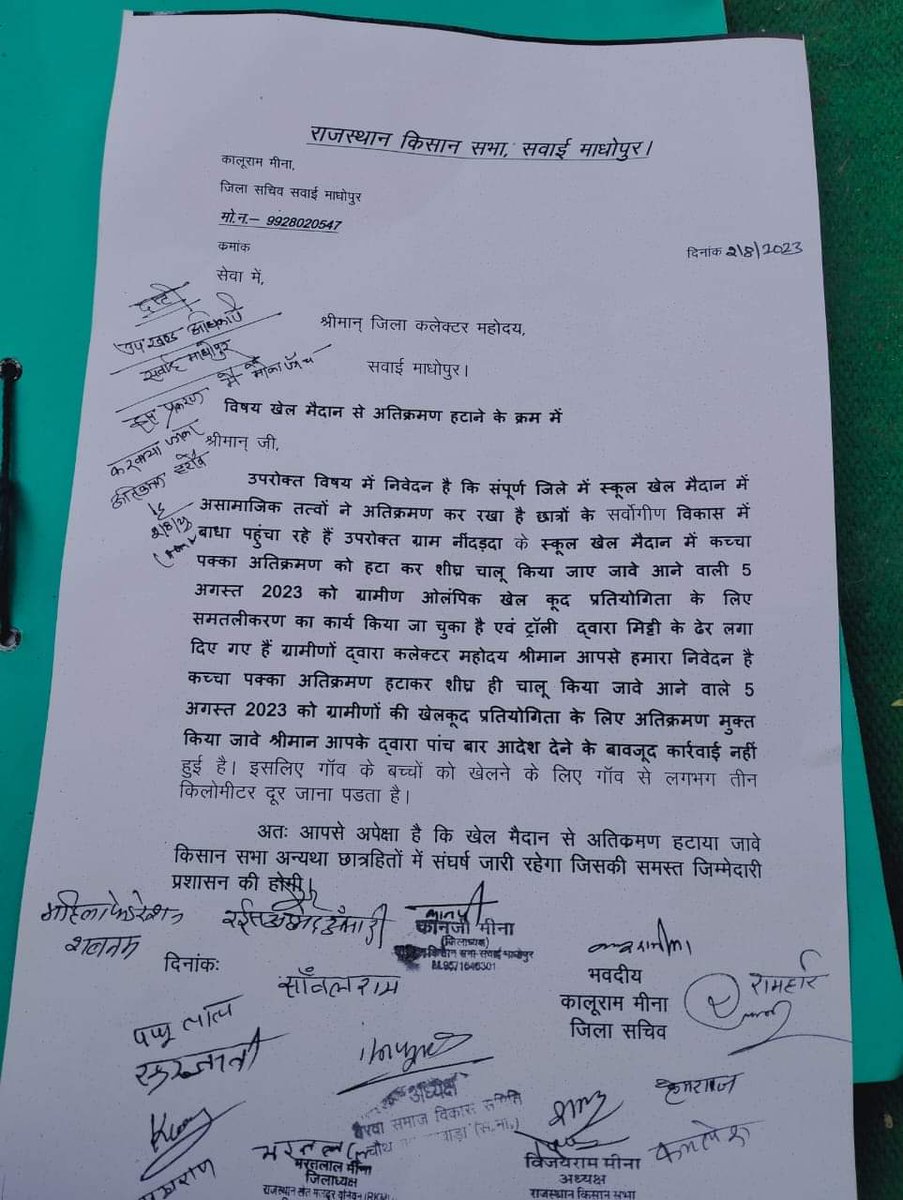 राजस्थान किसान सभा, सवाई माधोपुर।
कालूराम मीना,
जिला सचिव सवाई माधोपुर
मो.न.– 9928020547
कमांक
दिनांक 2/8/2023
सेवा में,
श्रीमान् जिला कलेक्टर महोदय,
सवाई माधोपुर।
उपखण्ड अधिकारी
सवाई माधोपुर
विषय खेल मैदान से अतिक्रमण हटाने के क्रम में
श्रीमान् जी,
उपरोक्त विषय में निवेदन है कि संपूर्ण जिले में स्कूल खेल मैदान में
असामाजिक तत्वों ने अतिक्रमण कर रखा है छात्रों के सर्वोगीण विकास में
बाधा पहुंचा रहे हैं उपरोक्त ग्राम नींदड़दा के स्कूल खेल मैदान में कच्चा
पक्का अतिक्रमण को हटा कर शीघ्र चालू किया जाए जावे आने वाली 5
अगस्त 2023 को ग्रामीण ओलंपिक खेल कूद प्रतियोगिता के लिए
समतलीकरण का कार्य किया जा चुका है एवं ट्रॉली द्वारा मिट्टी के ढेर लगा
दिए गए हैं ग्रामीणों द्वारा कलेक्टर महोदय श्रीमान आपसे हमारा निवेदन है
कच्चा पक्का अतिक्रमण हटाकर शीघ्र ही चालू किया जावे आने वाले 5
अगस्त 2023 को ग्रामीणों की खेलकूद प्रतियोगिता के लिए अतिक्रमण मुक्त
किया जावे श्रीमान आपके द्वारा पांच बार आदेश देने के बावजूद कार्रवाई नहीं
हुई है। इसलिए गॉव के बच्चों को खेलने के लिए गॉव से लगभग तीन
किलोमीटर दूर जाना पडता है।
अतः आपसे अपेक्षा है कि खेल मैदान से अतिक्रमण हटाया जावे
किसान सभा अन्यथा छात्रहितों में संघर्ष जारी रहेगा जिसकी समस्त जिम्मेदारी
प्रशासन की होगी।
शबनम
कानजी मीना
(जिलाध्यक्ष)
किसान सभा-सवाई माधोपुर
M.9571646301
दिनांकः
साँवलराम
भवदीय
कालूराम मीना
जिला सचिव
पप्पू लाल
अध्यक्ष
समाज विकास समिति
हंसराज
भरतलाल मीना
जिलाध्यक्ष
राजस्थान खेत मजदूर यूनियन (RKMU)
विजयराम मीना
अध्यक्ष
राजस्थान किसान सभा